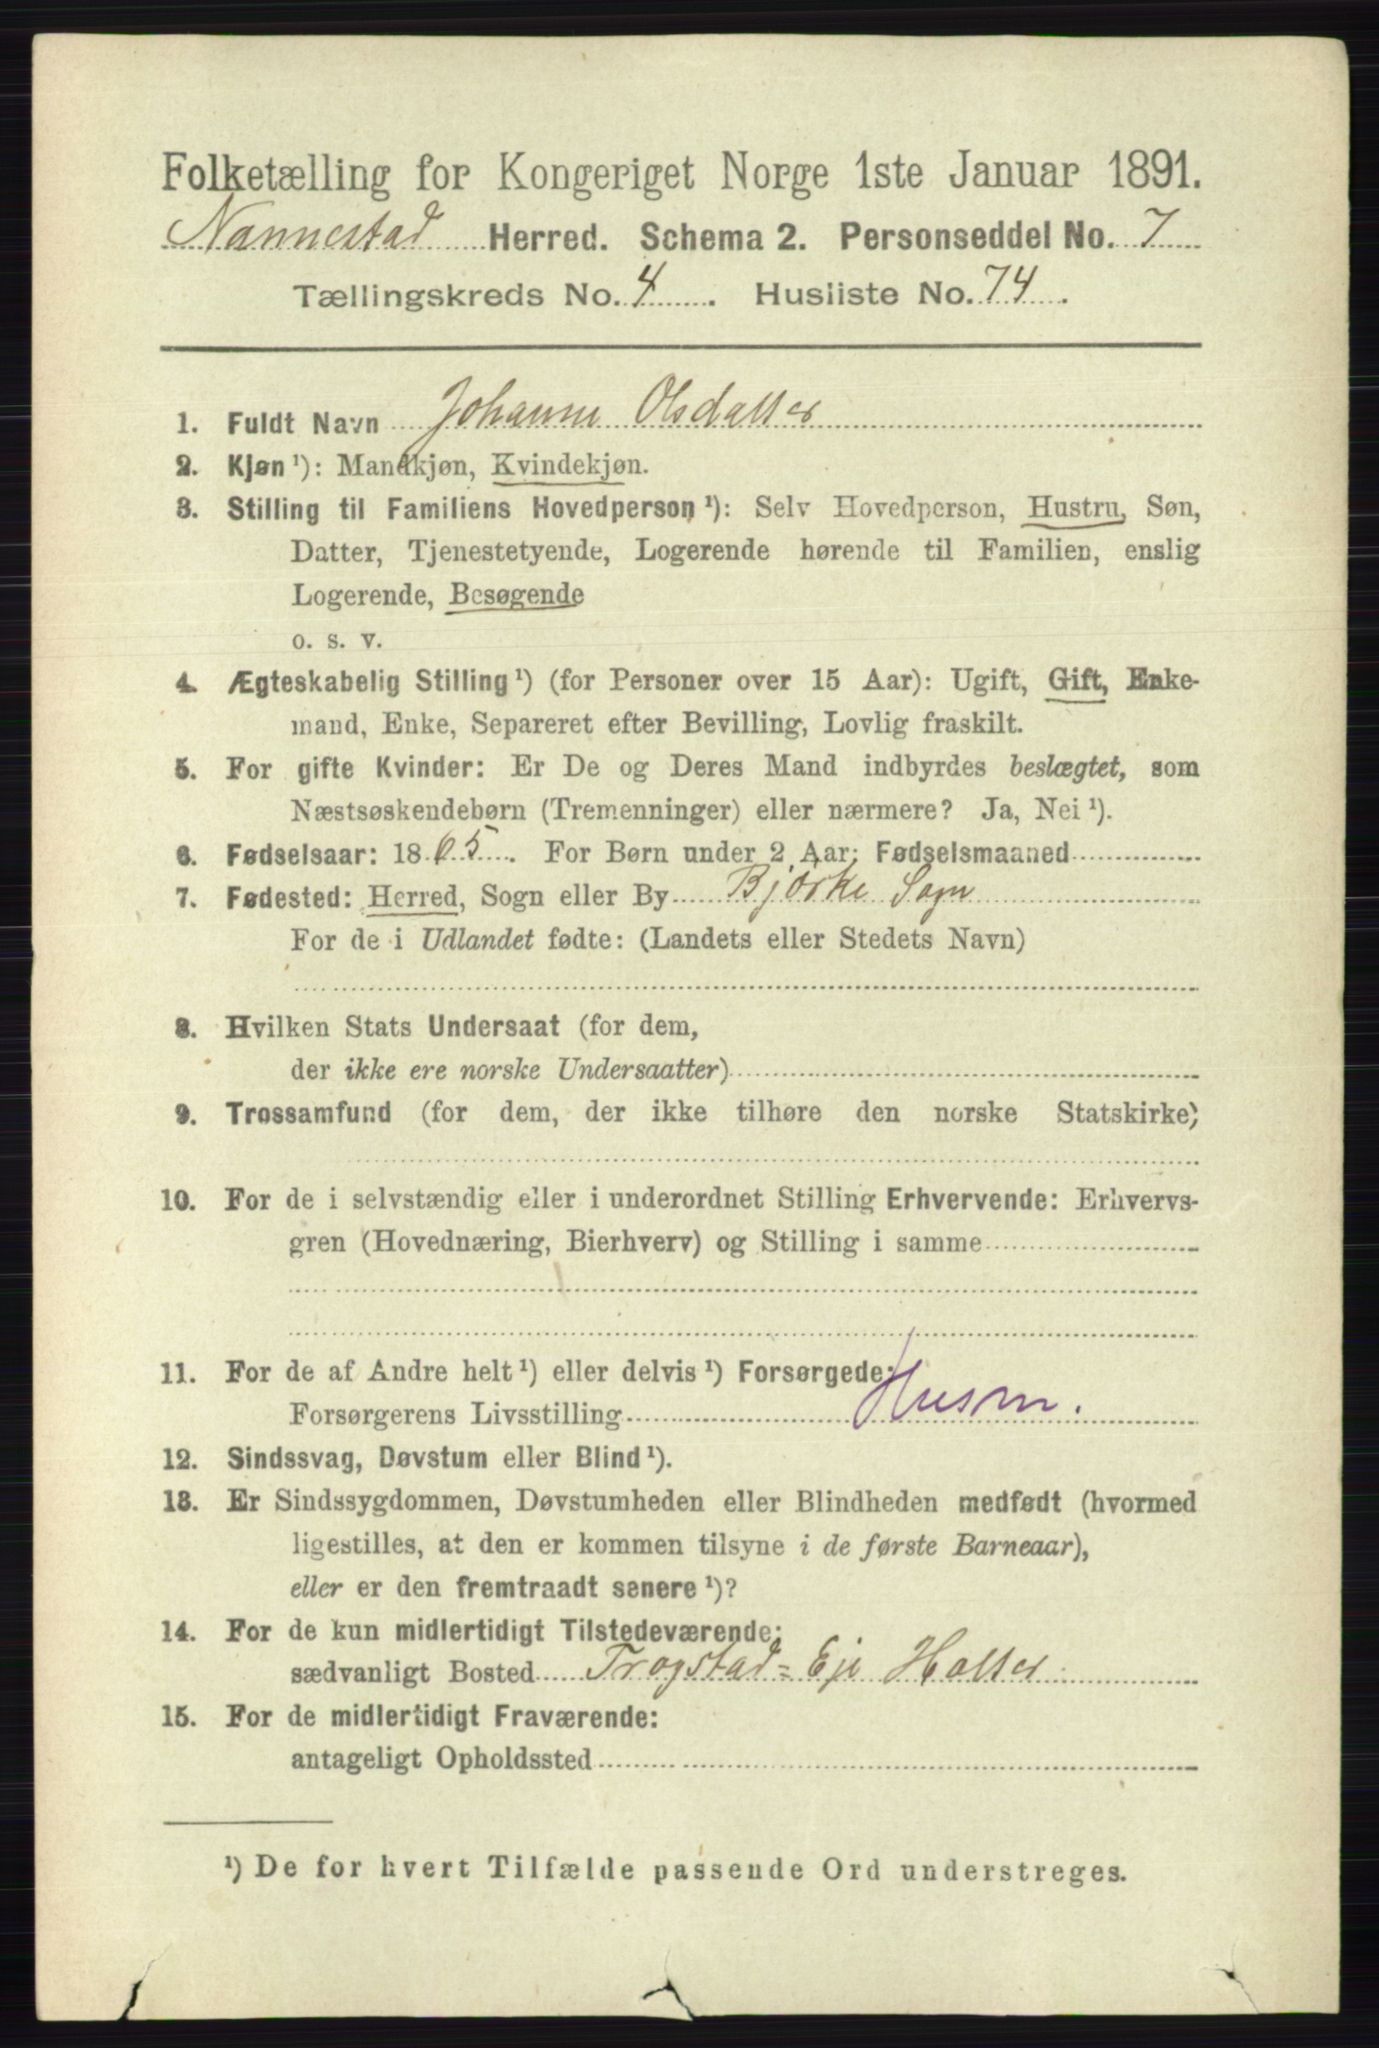 Folketælling for Kongeriget Norge 1ste Januar 1891.
Nannestad Herred. Schema 2. Personseddel No. 7
Tællingskreds No. 4. Husliste No. 74.
1. Fuldt Navn Johanne Olsdatter
2. Kjøn¹): Mandkjøn, Kvindekjøn.
3. Stilling til Familiens Hovedperson¹): Selv Hovedperson, Hustru, Søn,
Datter, Tjenestetyende, Logerende hørende til Familien, enslig
Logerende, Besøgende
o. s. v.
4. Ægteskabelig Stilling¹) (for Personer over 15 Aar): Ugift, Gift, Enke-
mand, Enke, Separeret efter Bevilling, Lovlig fraskilt.
5. For gifte Kvinder: Er De og Deres Mand indbyrdes beslægtet, som
Næstsøskendebørn (Tremenninger) eller nærmere? Ja, Nei¹).
6. Fødselsaar: 1865. For Børn under 2 Aar: Fødselsmaaned
7. Fødested: Herred, Sogn eller By Bjørke Sogn
For de i Udlandet fødte: (Landets eller Stedets Navn)
8. Hvilken Stats Undersaat (for dem,
der ikke ere norske Undersaatter)
9. Trossamfund (for dem, der ikke tilhøre den norske Statskirke)
10. For de i selvstændig eller i underordnet Stilling Erhvervende: Erhvervs-
gren (Hovednæring, Bierhverv) og Stilling i samme
11. For de af Andre helt¹) eller delvis¹) Forsørgede:
Forsørgerens Livsstilling Husm.
12. Sindssvag, Døvstum eller Blind¹).
13. Er Sindssygdommen, Døvstumheden eller Blindheden medfødt (hvormed
ligestilles, at den er kommen tilsyne i de første Barneaar),
eller er den fremtraadt senere¹)?
14. For de kun midlertidigt Tilstedeværende:
sædvanligt Bosted Trogstad=Eje Holter
15. For de midlertidigt Fraværende:
antageligt Opholdssted
¹) De for hvert Tilfælde passende Ord understreges.